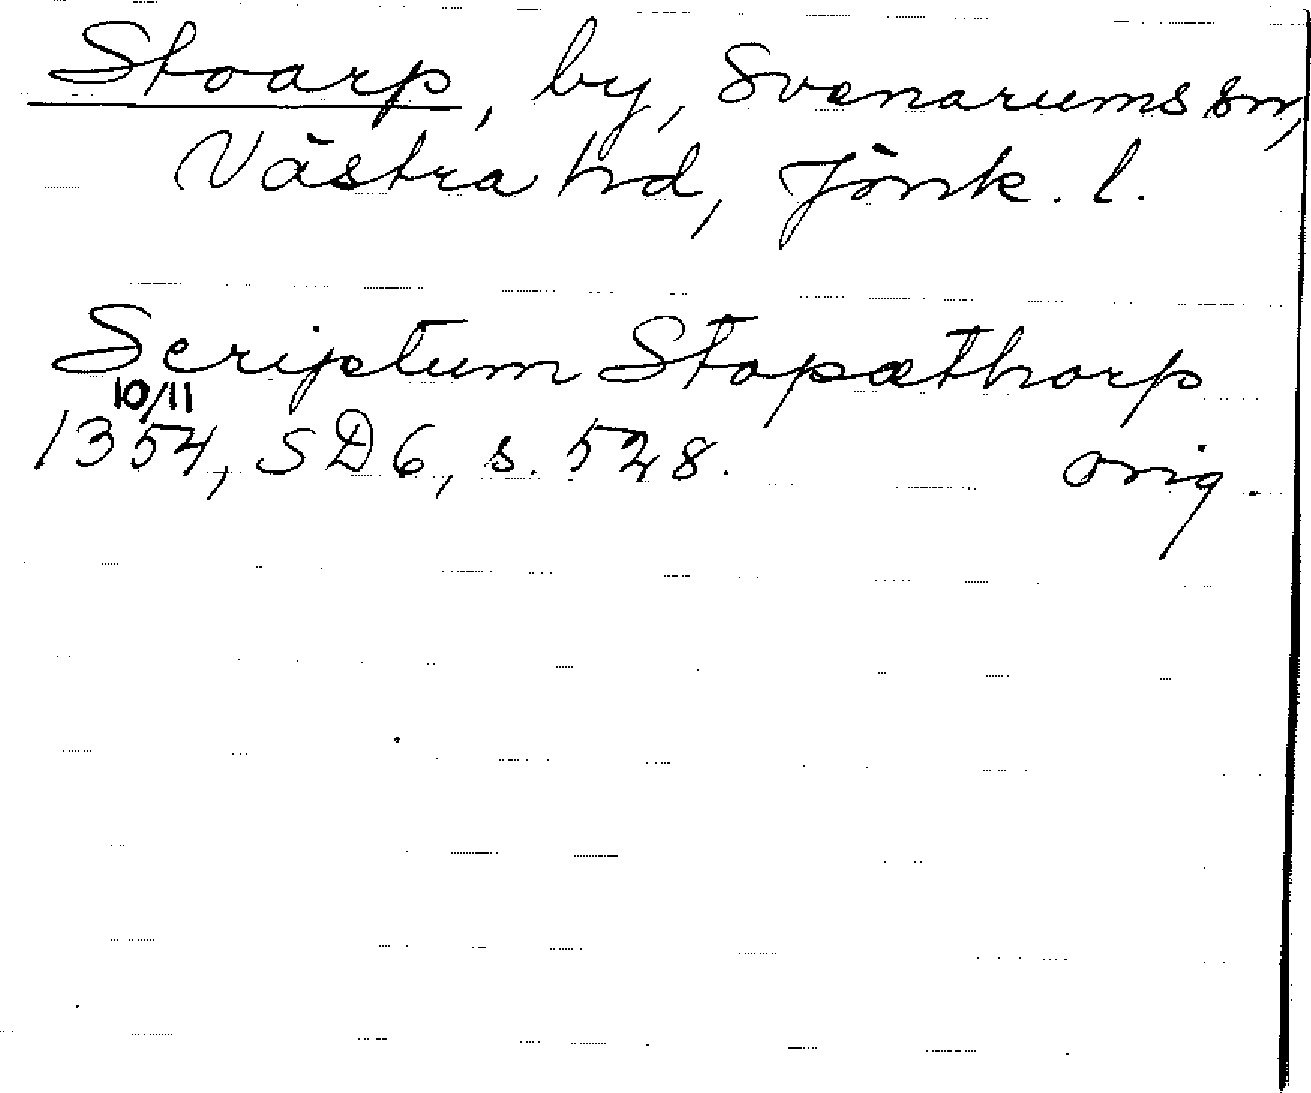 Stoarp, by, Svenarums sn,
Västra hd, Jönk. l.
Scriptum Stopæthorp
10/11
1354, SD 6, s. 528.     orig.